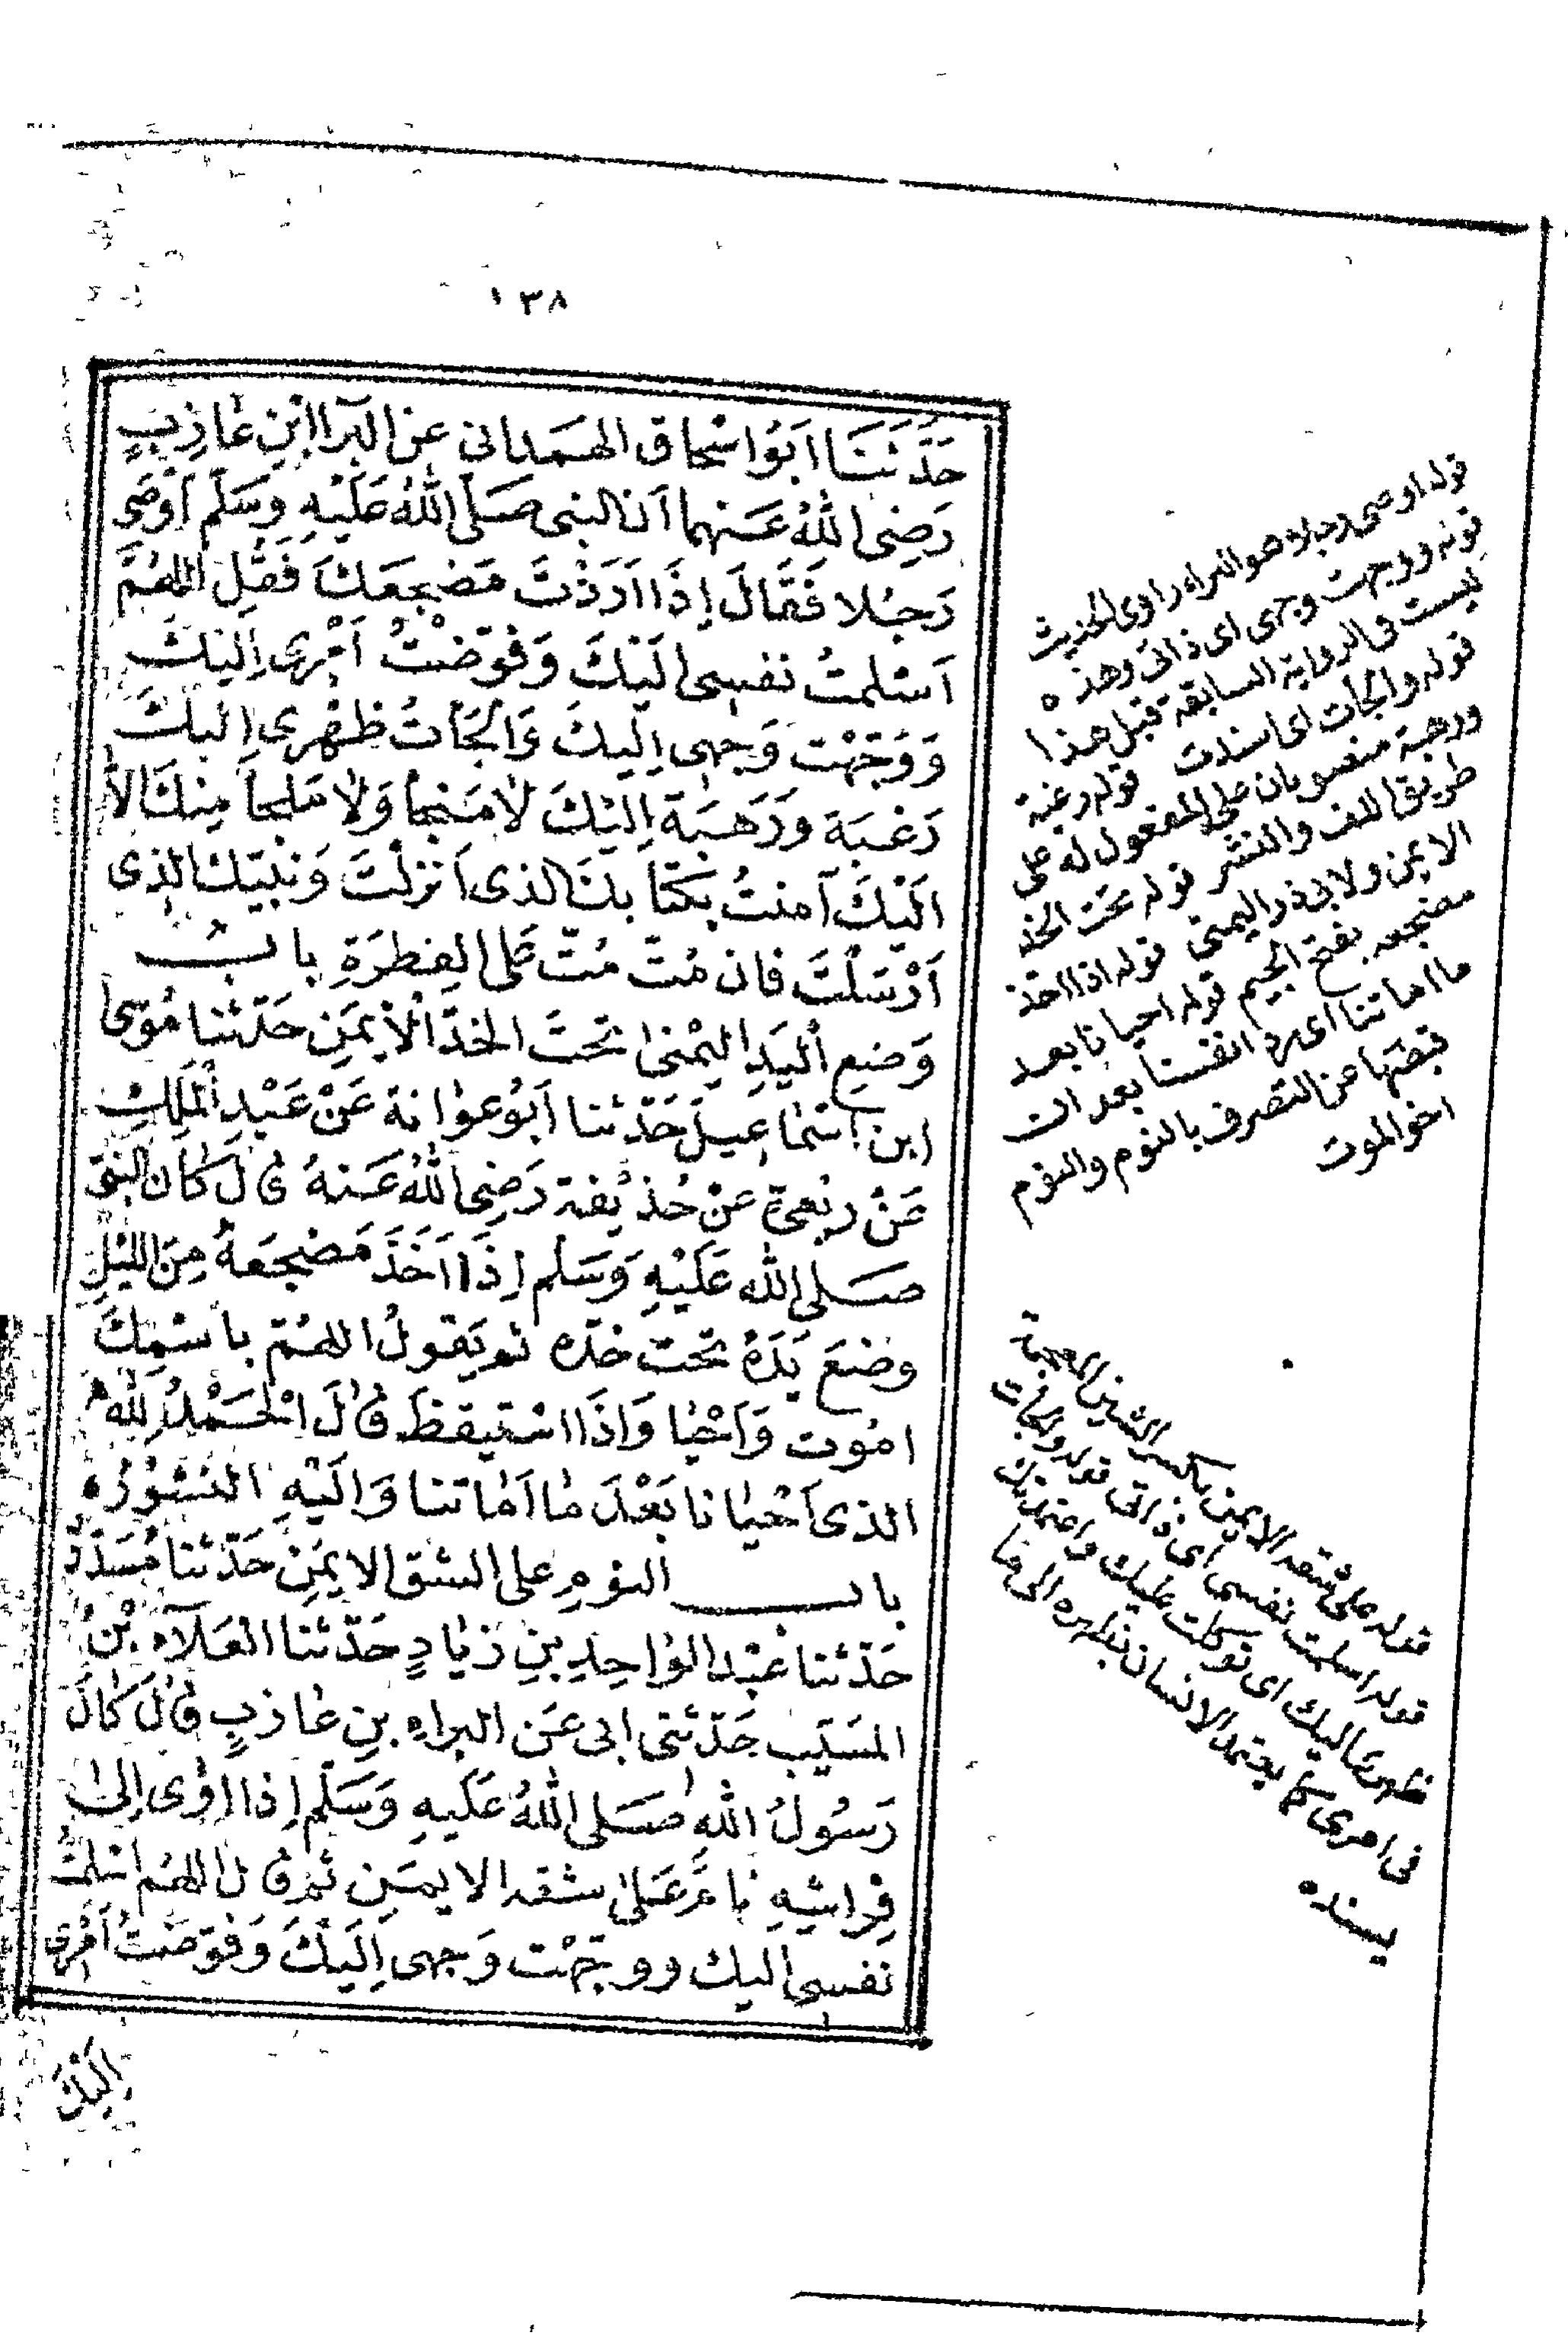 ١٣٨
حَدَّثَنَا اَبُو اسْحاق الهَمداني عن البرآ ابنِ عٰازِبٍ
رَضِىَ اللهُ عَنهما اَن النبى صَلّى اللهُ عَلَيْهِ وسَلّم اَوْصٰى
رَجُلا فَقَالَ اِذَا اَرَدْتَ مَضْجَعَكَ فَقُلِ اللهُمَّ
اَسْلمتُ نفسى الَيْكَ وَفوّضْتُ اَمْرى اِلَيْكَ
وَوَجّهْت وَجهى اِلَيكَ وَالجَأتُ ظَهْرى اِلَيكَ
رَغبَة وَرَهبَة اِلَيْكَ لا مَنجأ وَلا مَلجأ مِنكَ الاّ
الَيْكَ آمنتُ بكتابكَ الذى اَنزلْتَ وَنَبيّكَ الذى
اَرْسَلْتَ فان مُتّ مُتّ عَلى الفِطرَةِ بابُ
وَضعِ اْليَدِ اليُمْنىٰ تَحْتَ الخدّ الْاَيمَنِ حَدّثنا مُوسى
ابن اسمٰاعيلَ حَدّثنا اَبُو عوٰانة عَنْ عَبْدِ الْمَلِكِ
عَنْ ربْعىّ عنْ حُذيفة رَضِىَ اللهُ عَنهُ قٰالَ كٰان النبىّ
صَلى الله عَلَيْهِ وَسَلم اِذَا اَخَذَ مَضْجعَهُ مِنَ الليْلِ
وضعَ يَدَهُ تحت خدّه ثم يَقولُ اللهُمّ باسْمِكَ
امُوت وَاَحْيٰا وَاِذَا اسْتيقظَ قٰالَ الْحَمْدُ لِلّه
الذى اَحْيٰانا بَعْدَ مٰا اَمٰاتنا وَالَيْهِ النشُوْرُ
باب النومِ على الشق الايمَنِ حَدّثنا مُسَدّدٌ
حَدّثنا عَبْد الوٰاحِدِ بنِ زِيٰادٍ حَدّثنا العَلآء بْنُ
المسَيّب حَدّثنى ابى عَن البراءِ بنِ عٰازبٍ قٰالَ كٰانَ
رَسُولُ اللهِ صَلى اللهُ عَلَيهِ وَسَلّم اِذا اوٰى اِلىٰ
فِرٰاشِهِ نامَ عَلىٰ شقه الايمَنِ ثم قٰال اللهُم اسْلمتُ
نفسى اليك ووجّهْت وَجهى اِلَيْكَ وَفوّضْتُ اَمْرى
اِلَيْكَ
قوله اوصى رجلا هو البراء راوى الحديث
قوله ووجهت وجهى اى ذاتى وهذه
ليست فى الرواية السابقة قبل هذا
قوله والجأت اى اسندت قوله رغبة
ورهبة منصوبان على المفعول له على
طريق اللف والنشر قوله تحت الخد
الايمن ولابى ذر اليمنى قوله اذا اخذ
مضجعه بفتح الجيم قوله احيانا بعد
ما اماتنا اى رد انفسنا بعد ان
قبضها عن التصرف بالنوم والنوم
اخو الموت
قوله على شقه الايمن بكسر الشين المعجمة
قوله اسلمت نفسى اى ذاتى قوله والجأت
ظهرى اليك اى توكلت عليك
فى امرى كما يعتمد الانسان بظهره الى ما
يسنده